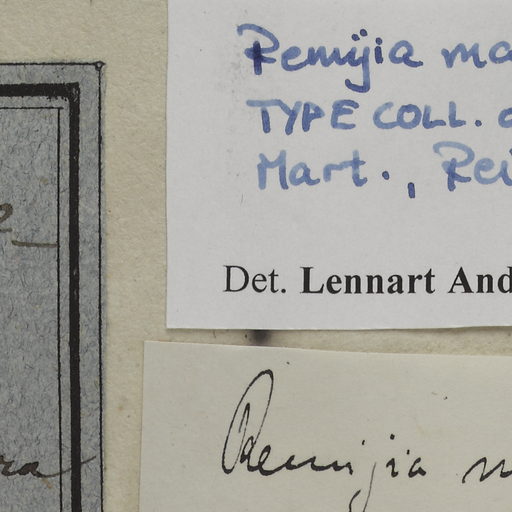 Remijia ma
TYPE COLL. 
Mart., Rei
Det. Lennart And
Remijia m
ra